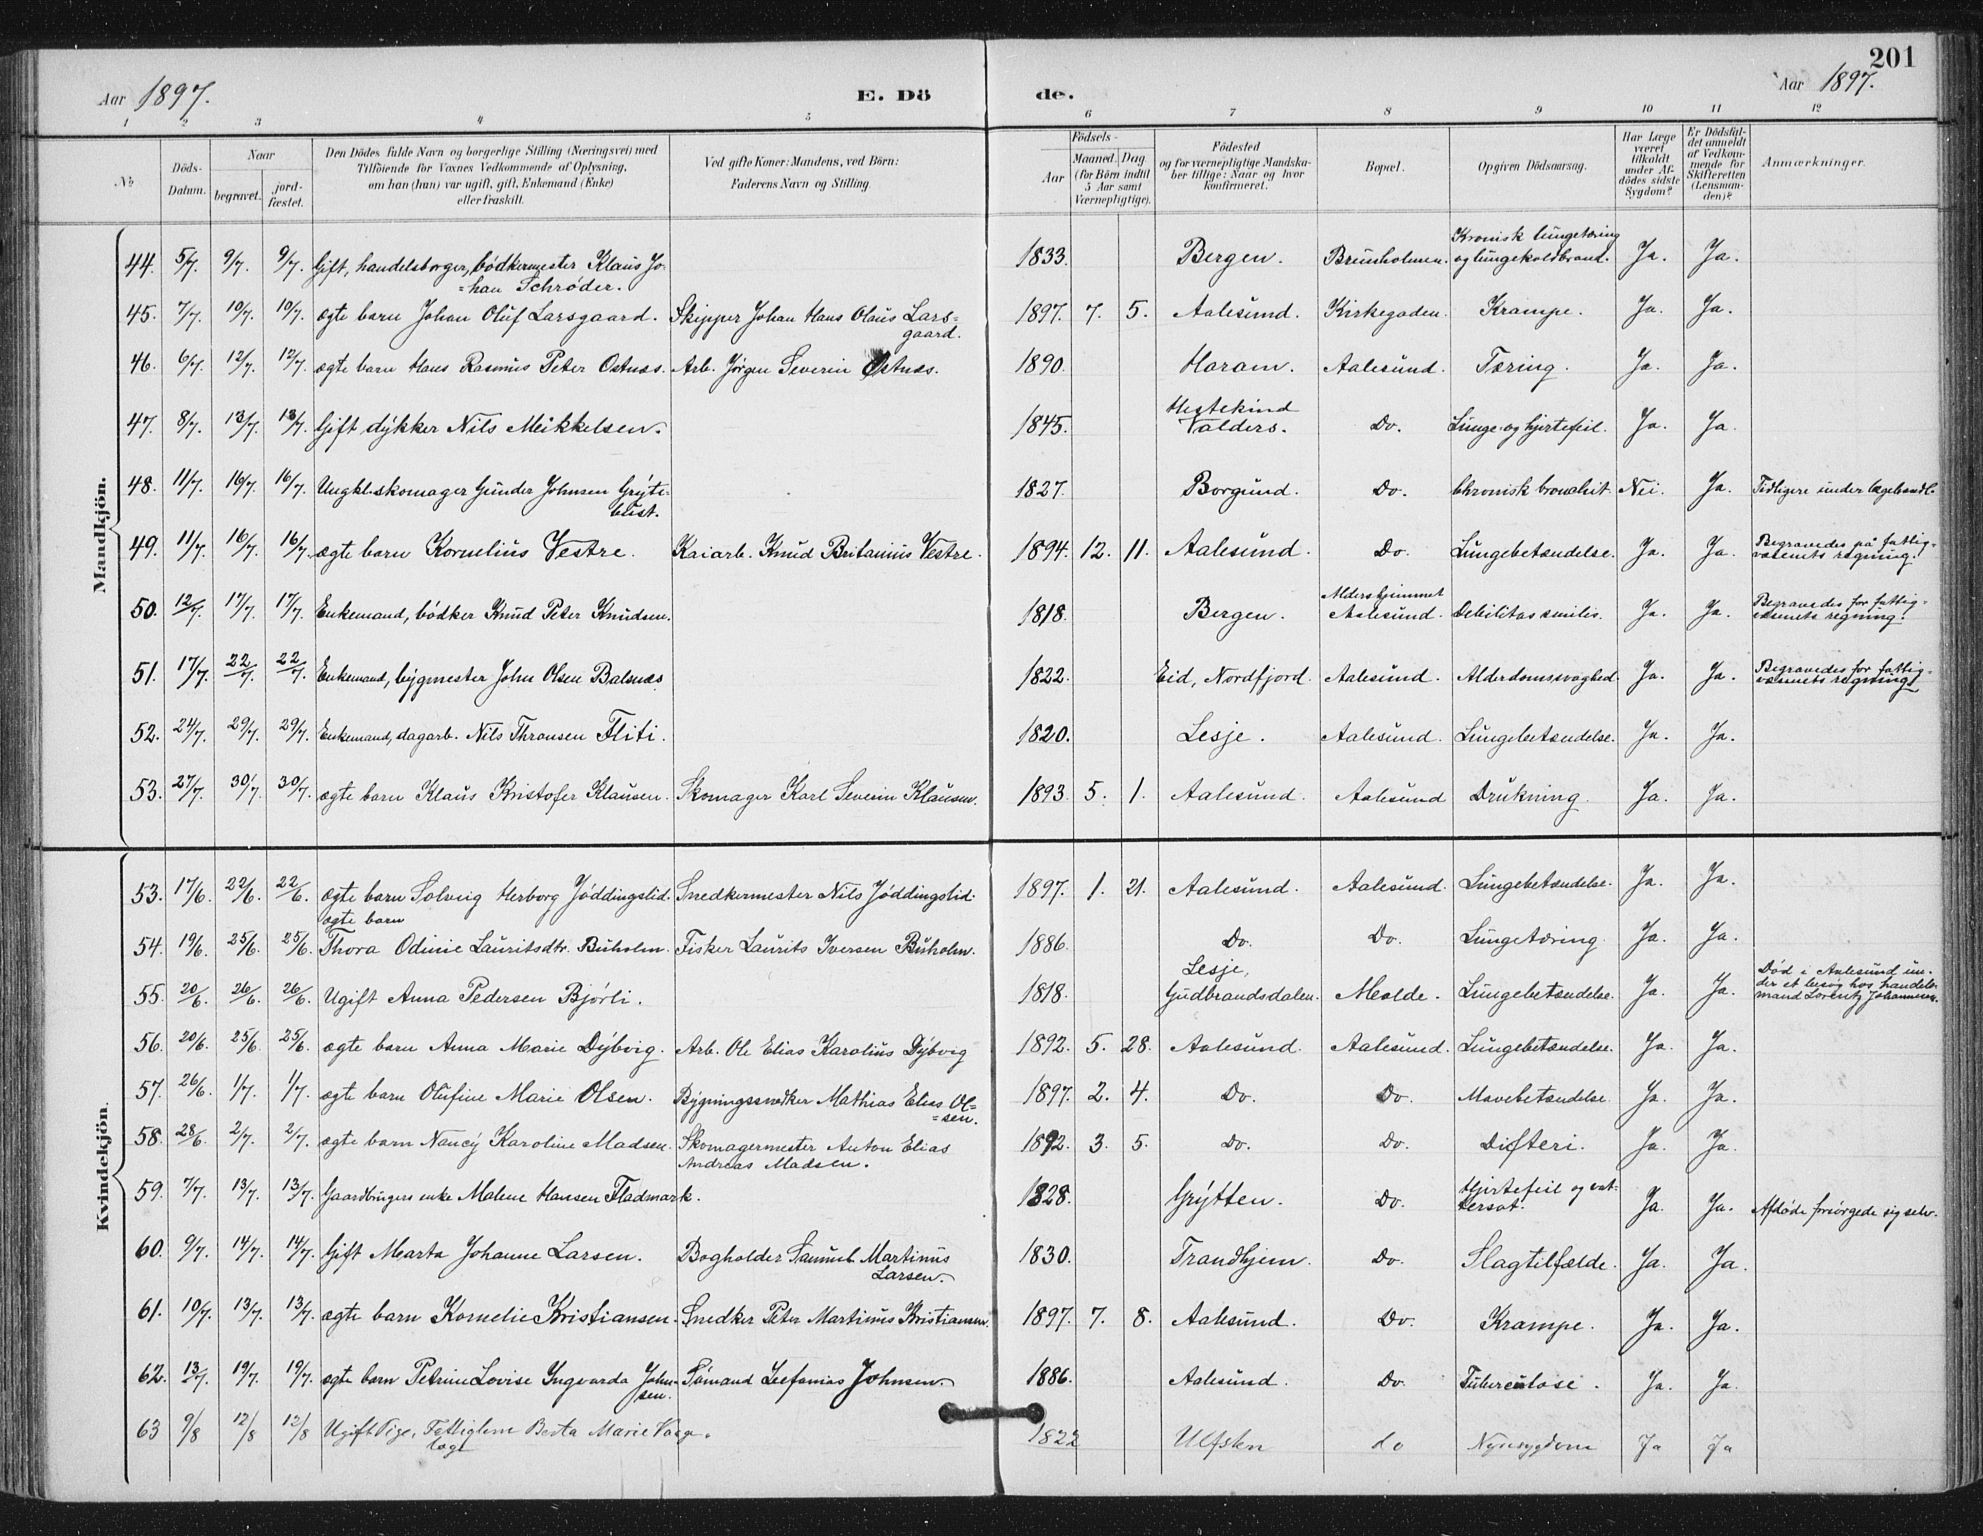 201
Aar 1897. E. Dö de. Aar 1897.
1 2 3 4 5 6 7 8 9 10 11 12
№
Döds-Datum.
Naar
begravet.
jord-fæstet.
Den Dödes fulde Navn og borgerlige Stilling (Næringsvei) med
Tilföiende for Voxnes Vedkommende af Oplysning,
om han (hun) var ugift, gift, Enkemand (Enke)
eller fraskilt.
Ved gifte Koner: Mandens, ved Börn:
Faderens Navn og Stilling.
Födsels-
Aar
Maaned. Dag.
(for Börn indtil
5 Aar samt
Værnepligtige).
Födested
og for værnepligtige Mandska-
ber tillige: Naar og hvor
konfirmeret.
Bopæl.
Opgiven Dödsaarsag.
Har Læge
været
tilkaldt
under Af-
dödes sidste
Sygdom?
Er Dödsfal-
det anmeldt
af Vedkom-
mende for
Skifteretten
(Lensman-
den)?
Anmærkninger.
Mandkjön.
44. 5/7. 9/7. 9/7. Gift, handelsborger, bödkermester Klaus Jo-
=han Schröder. 1833. Bergen. Brunholmen. Kronisk lungetæring
og lungekoldbrand. Ja. Ja.
45. 7/7. 10/7. 10/7. ægte barn Johan Oluf Larsgaard. Skipper Johan Hans Olaus Lars=
gaard. 1897. 7. 5. Aalesund. Kirkegaden. Krampe. Ja. Ja.
46. 6/7. 12/7. 12/7. ægte barn Hans Rasmus Peter Ostnæs. Arb. Jörgen Severin Ostnæs. 1890. Haram. Aalesund. Tæring. Ja. Ja.
47. 8/7. 13/7. 13/7. Gift dykker Nils Mikkelsen. 1845. Hestekind
Valders. Do. Lunge- og hjertefeil. Ja. Ja.
48. 11/7. 16/7. 16/7. Ungkl. skomager Gunder Johnsen Gryte-
bust. 1827. Borgund. Do. Chronisk bronchit. Nei. Ja. Tidligere under lægebandl.
49. 11/7. 16/7. 16/7. ægte barn Kornelius Vestre. Kaiarb. Knud Britanius Vestre. 1894. 12. 11. Aalesund. Do. Lungebetændelse. Ja. Ja. Begravedes på fattig-
væsenets regning.
50. 12/7. 17/7. 17/7. Enkemand, bödker Knud Peter Knudsen. 1818. Bergen. Aldershjemmet
Aalesund. Debilitas senilis. Ja. Ja. Begravedes for fattig-
væsenets regning.
51. 17/7. 22/7. 22/7. Enkemand, bygmester John Olsen Balsnæs 1822. Eid, Nordfjord. Aalesund. Alderdomssvaghed. Ja. Ja. Begravedes for fattig-
væsenets regning.
52. 24/7. 29/7. 29/7. Enkemand, dagarb. Nils Thronsen Fliti. 1820. Lesje. Aalesund. Lungebetændelse. Ja. Ja.
53. 27/7. 30/7. 30/7. ægte barn Klaus Kristofer Klausen. Skomager Karl Severin Klausen. 1893. 5. 1. Aalesund. Aalesund Drukning. Ja. Ja.
Kvindekjön.
53. 17/6. 22/6. 22/6. ægte barn Solveig Herborg Jöddingslid. Snedkermester Nils Jöddingslid. 1897. 1. 21. Aalesund. Aalesund. Lungebetændelse. Ja. Ja.
ægte barn
54. 19/6. 25/6. 25/6. Thora Odinie Lauritsdtr. Buholm. Fisker Laurits Iversen Buholm. 1886. Do. Do. Lungetæring. Ja. Ja.
55. 20/6. 26/6. 26/6. Ugift Anna Pedersen Bjørli. 1818. Lesje,
Gudbrandsdalen. Molde. Lungebetændelse. Ja. Ja. Död i Aalesund un-
der et besøg hos handels-
mand Lorentz Johannesen.
56. 20/6. 25/6. 25/6. ægte barn Anna Marie Dybvig. Arb. Ole Elias Karolius Dybvig 1892. 5. 28. Aalesund. Aalesund. Lungebetændelse. Ja. Ja.
57. 26/6. 1/7. 1/7. ægte barn Olufine Marie Olsen. Bygningssnedker Mathias Elias Ol=
=sen. 1897. 2. 4. Do. Do. Mavebetændelse. Ja. Ja.
58. 28/6. 2/7. 2/7. ægte barn Nancy Karoline Madsen. Skomagermester Anton Elias
Andreas Madsen. 1892. 3. 5. Do. Do. Difteri. Ja. Ja.
59. 7/7. 13/7. 13/7. Gaardbrugers enke Malene Hansen Fladmark. 1828. Grytten. Do. Hjertefeil og vat-
tersot. Ja. Ja. Afdöde forsörgede sig selv.
60. 9/7. 14/7. 14/7. Gift Marta Johanne Larsen. Bogholder Samuel Martinus
Larsen. 1830. Trondhjem. Do. Slagtilfælde. Ja. Ja.
61. 10/7. 13/7. 13/7. ægte barn Kornelie Kristiansen. Snedker Peter Martinus Kristiansen. 1897. 7. 8. Aalesund. Do. Krampe. Ja. Ja.
62. 13/7. 19/7. 19/7. ægte barn Petrine Lovise Ingvarda John-
sen. Sömand Stefanias Johnsen. 1886. Aalesund. Do. Tuberculose. Ja. Ja.
63 9/8 12/8 12/8 Ugift Pige, Fattiglem Berta Marie Vaage. 1822 Ulfsten do Nyresygdom Ja Ja